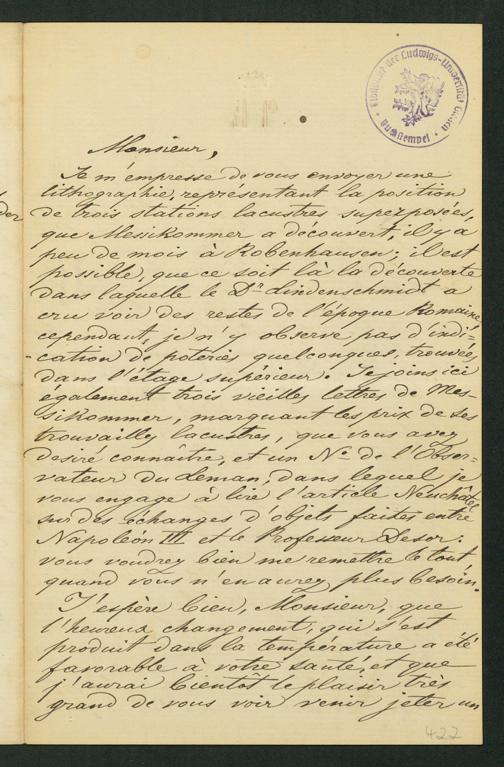 Monsieur,
Je m'empresse de vous envoyer une
lithographie, représentant la position
de trois stations lacustres superposées,
que Messikommer a découvert, il y a
peu de mois à Robenhausen; il est
possible, que ce soit là la découverte
dans laquelle le Dr Lindenschmidt a
cru voir des restes de l'époque Romaine,
cependant, je n'y observe pas d'indi-
cation de poteries quelconques, trouvées
dans l'étage supérieur. Je joins ici
également trois vieilles lettres de Mes-
sikommer, marquant les prix de ses
trouvailles lacustres, que vous avez
desiré connaître, et un No de l'Obser-
vateur du Leman, dans lequel je
vous engage à lire l'article Neuchâtel
sur des échanges d'objets faites entre
Napoléon III et le Professeur Desor:
vous voudrez bien me remettre le tout
quand vous n'en aurez plus besoin.
J'espère bien, Monsieur, que
l'heureux changement, qui s'est
produit dans la température a été
favorable à votre santé, et que
j'aurai bientôt le plaisir très
grand de vous voir venir jeter un
422
der
der Ludwigs-Universität Giessen
Buchstempel